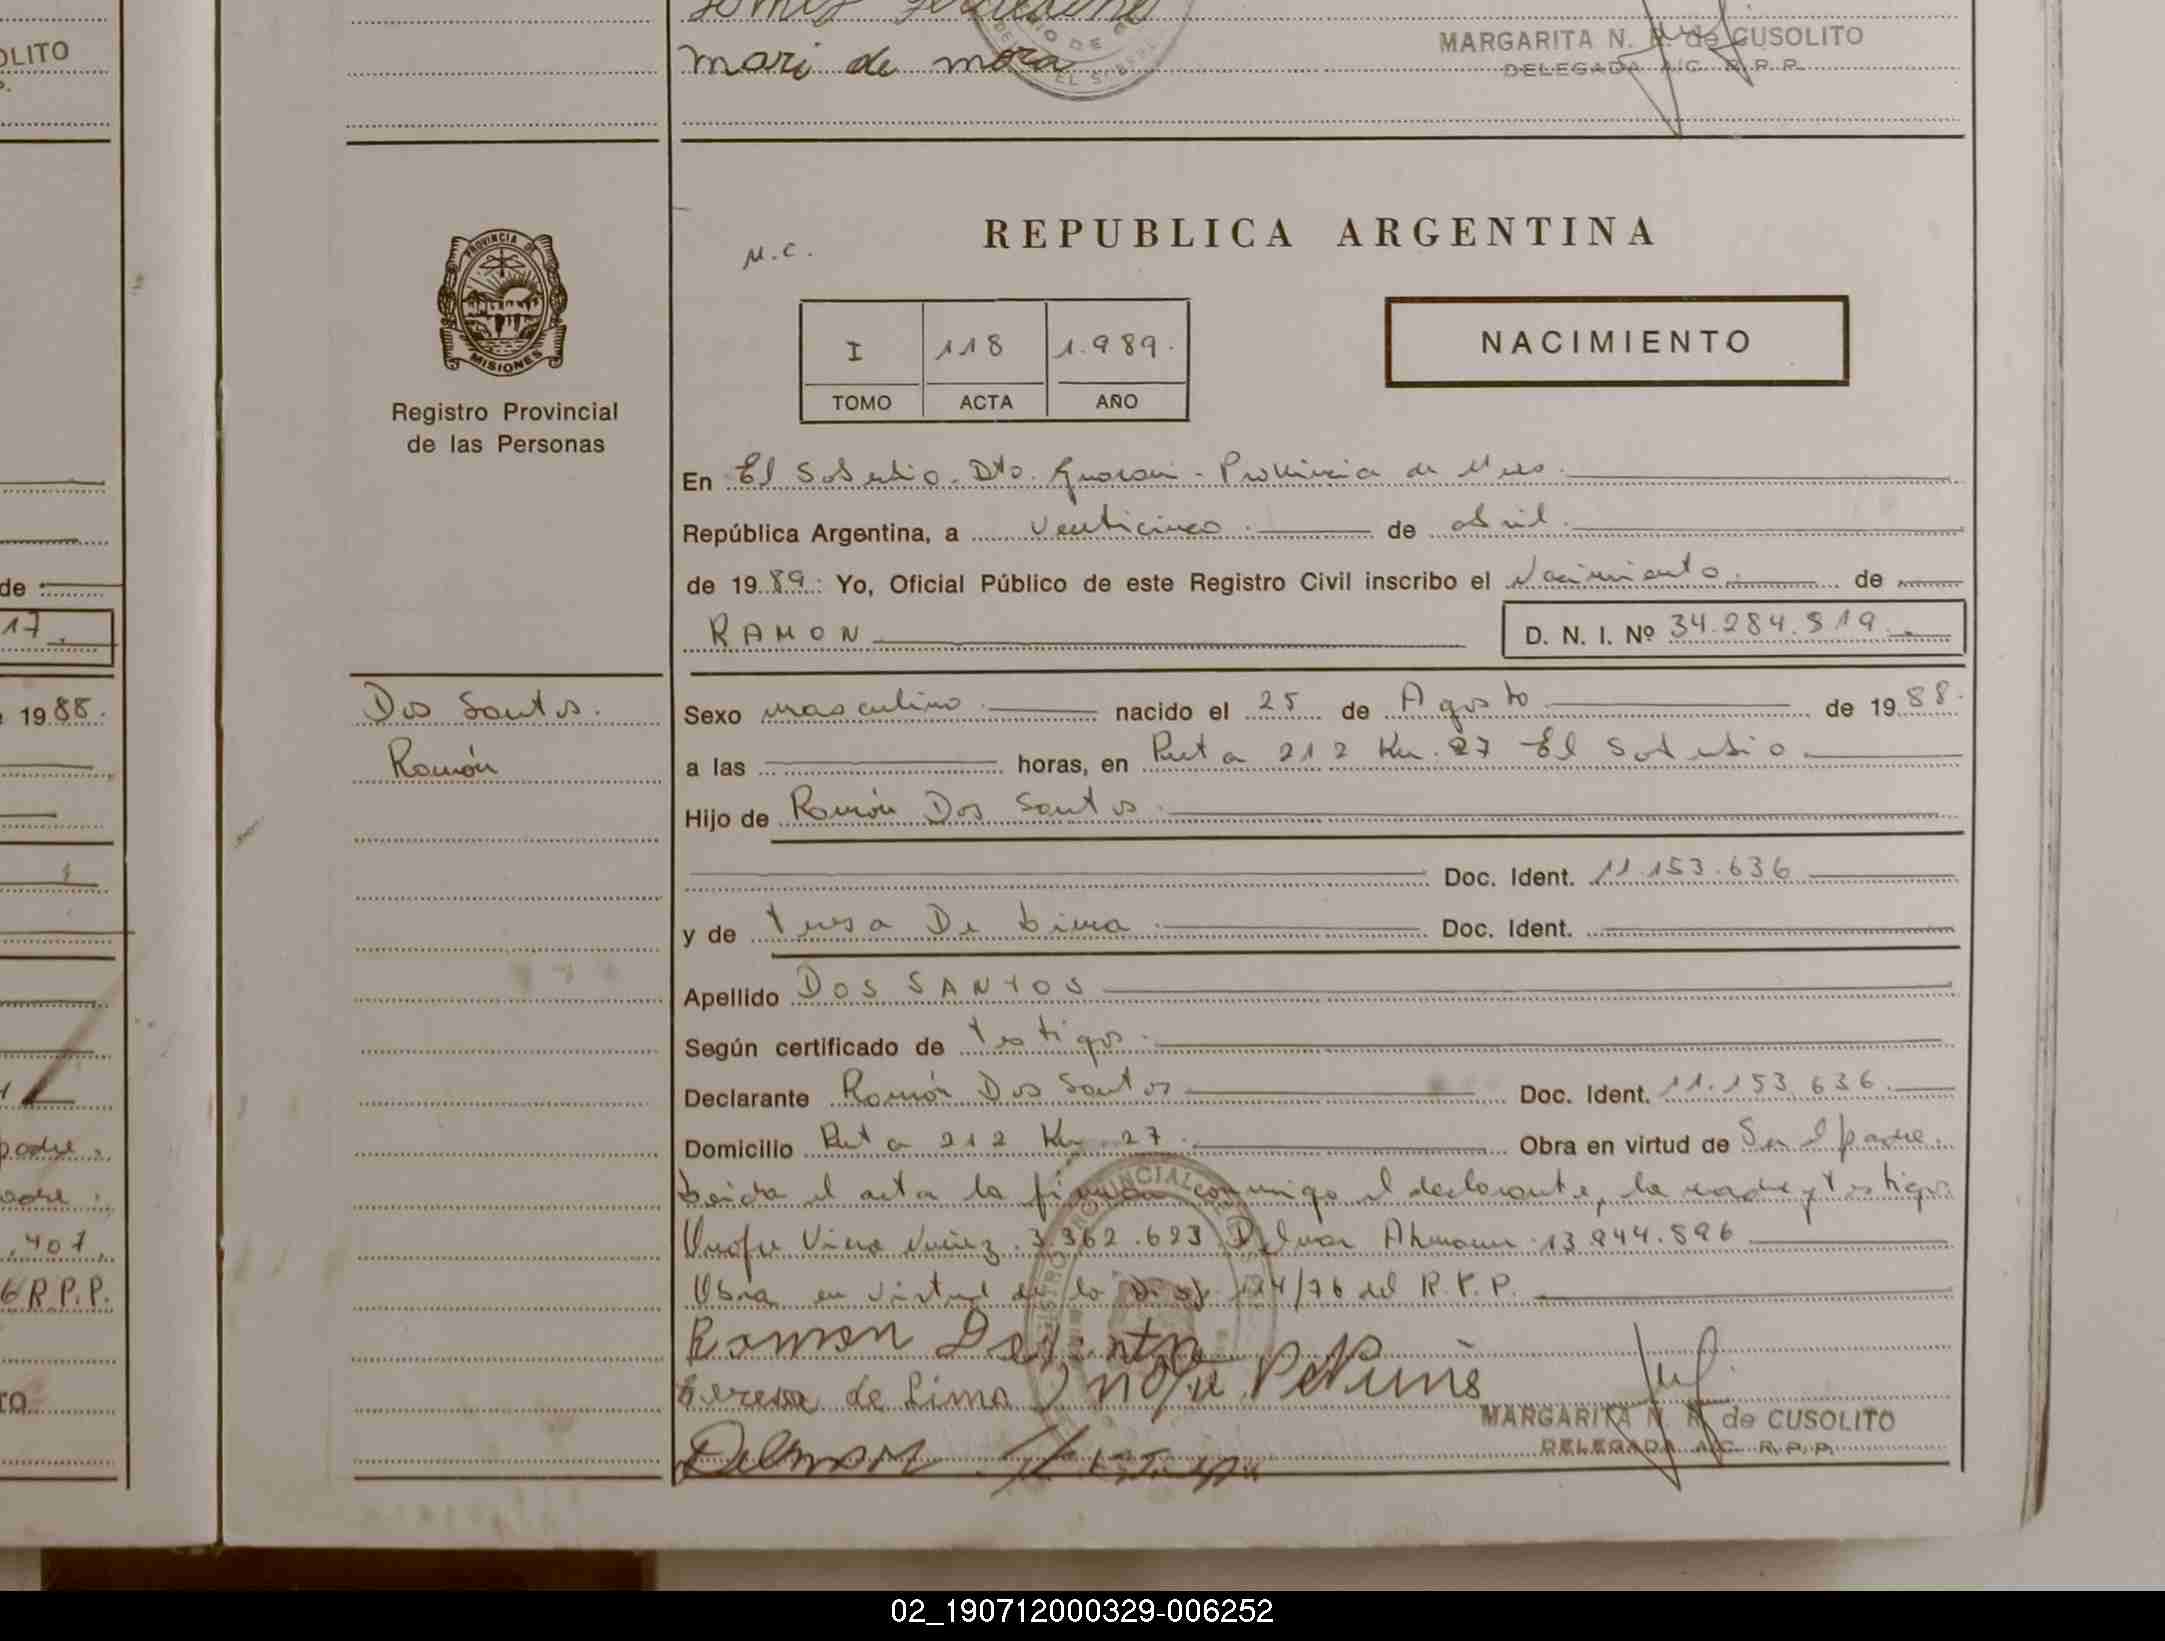 mari de mora
MARGARITA N. R. de CUSOLITO
DELEGADA A/C. R. P. P.
OLITO
REPUBLICA ARGENTINA
M.C.
PROVINCIA DE
MISIONES
Registro Provincial
de las Personas
I 118 1.989.
TOMO ACTA AÑO
NACIMIENTO
En El Soberbio. Dto. Guarani - Provincia de Mnes.
República Argentina, a veinticinco. de abril.
de 19 89. Yo, Oficial Público de este Registro Civil inscribo el Nacimiento. de
RAMON D. N. I. Nº 34.284.819.
Dos Santos.
Ramón
Sexo masculino. nacido el 25 de Agosto de 19 88.
a las horas, en Ruta 212 Km. 27 El Soberbio
Hijo de Ramón Dos Santos.
Doc. Ident. 11.153.636
y de Teresa De Lima Doc. Ident.
Apellido DOS SANTOS
Según certificado de Testigos.
Declarante Ramón Dos Santos Doc. Ident. 11.153.636.
Domicilio Ruta 212 Km. 27. Obra en virtud de Ser el padre.
Leida el acta la firman conmigo el declarante, la madre y testigos
Onofre Viera Nuñez. 3.362.693 Delmar 13.944.896
Obra en virtud de la Disp. 194/76 del R.P.P.
Ramon Dos Santos
teresa de Lima Onofre
Delmar
MARGARITA N. R. de CUSOLITO
DELEGADA A/C. R. P. P.
de
17.
19 88.
padre.
madre.
407.
R.P.P.
TO
02_190712000329-006252